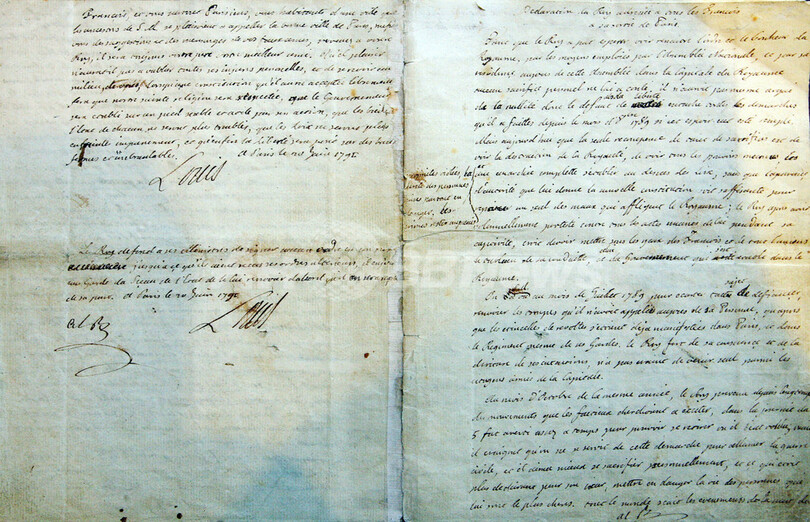 François, et vous surtout Parisiens, vous habitants d'une ville que
les ancestres de S. M. se plaisoient a appeller la bonne ville de Paris, méfiez
vous des suggestions et des mensonges de vos faux amis, revenez a votre
Roy, il sera toujours votre pere, votre meilleur ami. quel plaisir
n'aura t'il pas a oublier toutes ses injures personnelles, et de se revoir au
milieu de vous, lorsqu'une constitution qu'il aura acceptée librement
fera que notre sainte religion sera respectée, que le Gouvernement
sera etabli sur un pied stable et utile par son action, que les biens et
l'etat de chacun ne seront plus troublés, que les loix ne seront plus
enfreintes impunement, et qu'enfin la liberté sera posée sur des bases
fermes et inébranlables. a Paris le 20 Juin 1791
Louis
Le Roy deffend a ses ministres de signer aucun ordre en son nom
jusqu'a ce qu'ils ayent recus ses ordres ulterieurs, il enjoint
au Garde du Sceau de l'Etat de le lui renvoier d'abord qu'il en sera requis
de sa part. a Paris le 20 Juin 1791
Louis
Declaration du Roy adressée a tous les François
a sa sortie de Paris
Tant que le Roy a pu esperer voir renaitre l'ordre et le bonheur du
Royaume, par les moyens employés par l'Assemblée Nationale, et par sa
residence aupres de cette Assemblée dans la Capitale du Royaume
aucun sacrifice personnel ne lui a couté, il n'auroit pas meme argué
de la nullité dont le deffaut de liberté entache toutes les demarches
qu'il a faittes depuis le mois d'8bre 1789 si cet espoir eut eté rempli.
Mais aujourd'hui que la seule recompense de tant de sacrifices est de
voir la destruction de la Royauté, de voir tous les pouvoirs meconnus les
proprietés violées, la
sureté des personnes
mise partout en
danger, les
crimes rester impunis
et une anarchie complete s'etablir au dessus des loix, sans que l'apparence
d'autorité que lui donne la nouvelle constitution soit suffisante pour
reparer un seul des maux qui affligent le Royaume; le Roy apres avoir
solemnellement protesté contre tous les actes emanés de lui pendant sa
captivité, croit devoir mettre sous les yeux des François et de tout l'univers
le tableau de sa conduite, et du Gouvernement qui s'est etabli dans le
Royaume.
On a vu au mois de Juillet 1789 pour ecarter tout sujet de defiance
renvoier les troupes qu'il n'avoit appellé aupres de sa Personne, qu'apres
que les etincelles de revolte s'etoient deja manifestées dans Paris, et dans
le Regiment meme de ses Gardes. le Roy fort de sa conscience et de la
droiture de ses intentions, n'a pas craint de venir seul parmi les
citoyens armés de la Capitale.
Au mois d'Octobre de la meme année, le Roy prevenu depuis longtemps
du mouvements que les factieux cherchoient a exciter, dans la journée du
5 fut averti assez a temps pour pouvoir se retirer ou il eut voulu, mais
il craignit qu'on ne se servit de cette demarche pour allumer la guerre
civile, et il aima mieux se sacrifier personnellement, et ce qui etoit
plus dechirant pour son cœur, mettre en danger la vie des personnes qui
lui sont le plus cheres. tout le monde scait les evenements de la nuit du